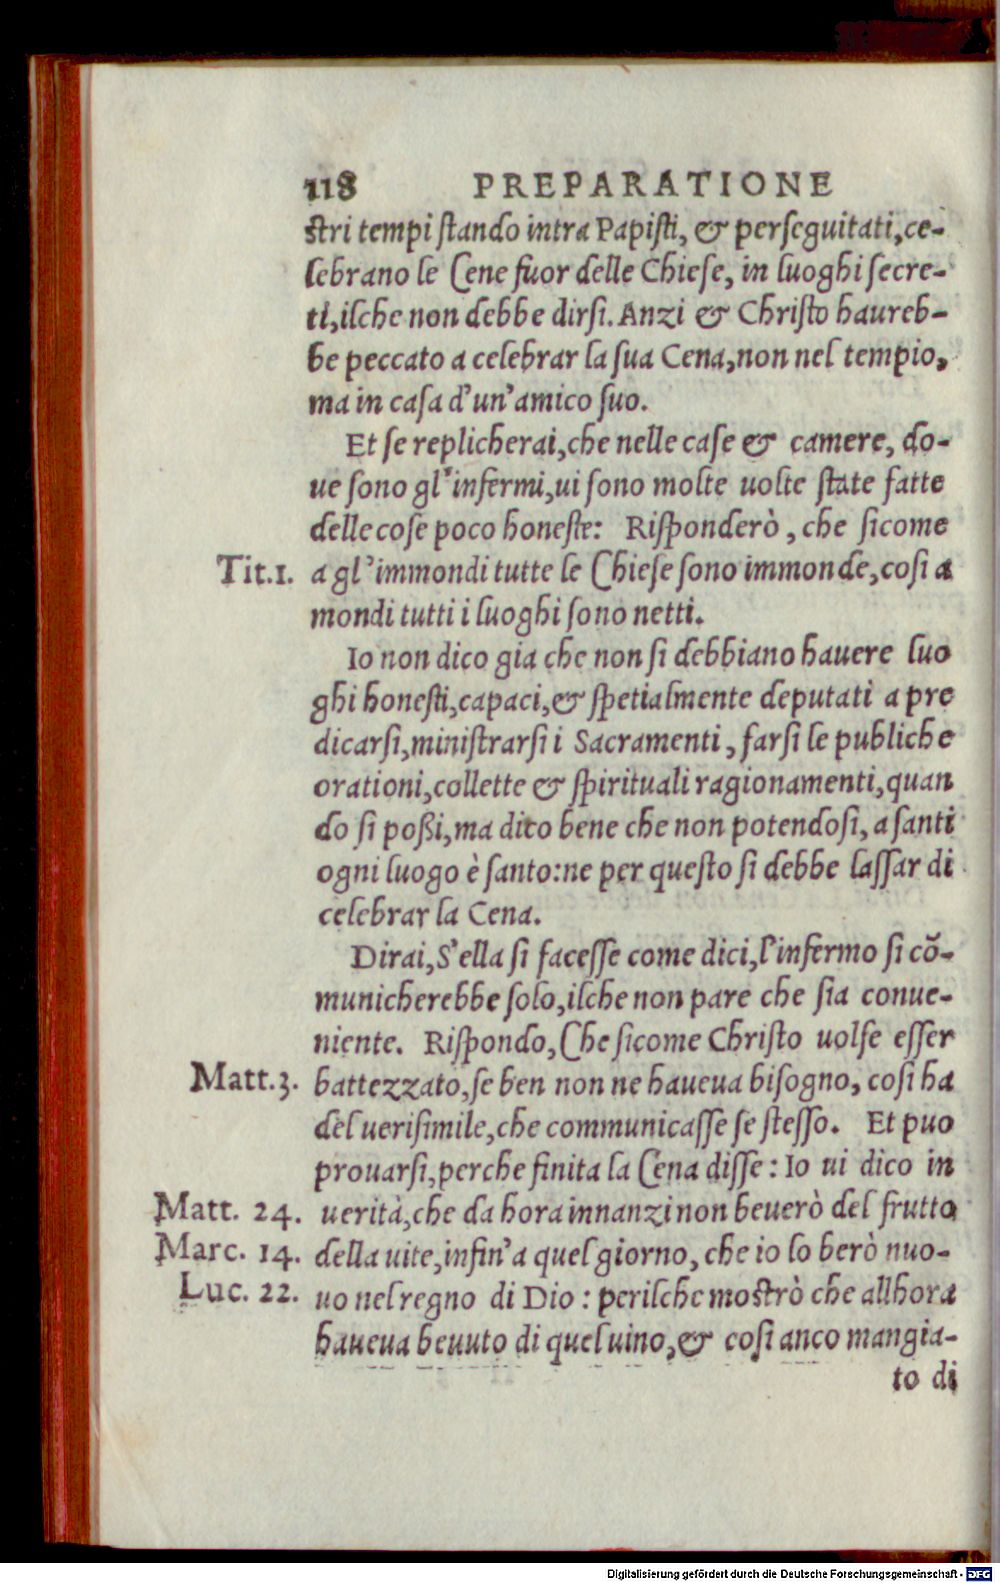 118 PREPARATIONE
stri tempi stando intra Papisti, & perseguitati, ce-
lebrano le Cene fuor delle Chiese, in luoghi secre-
ti, ilche non debbe dirsi. Anzi & Christo haureb-
be peccato a celebrar la sua Cena, non nel tempio,
ma in casa d'un'amico suo.
Et se replicherai, che nelle case & camere, do-
ue sono gl'infermi, ui sono molte uolte state fatte
delle cose poco honeste: Risponderò, che sicome
Tit.1. a gl'immondi tutte le Chiese sono immonde, cosi a
mondi tutti i luoghi sono netti.
Io non dico gia che non si debbiano hauere luo
ghi honesti, capaci, & spetialmente deputati a pre
dicarsi, ministrarsi i Sacramenti, farsi le publiche
orationi, collette & spirituali ragionamenti, quan
do si poßi, ma dico bene che non potendosi, a santi
ogni luogo è santo: ne per questo si debbe lassar di
celebrar la Cena.
Dirai, S'ella si facesse come dici, l'infermo si cõ-
municherebbe solo, ilche non pare che sia conue-
niente. Rispondo, Che sicome Christo uolse esser
Matt.3. battezzato, se ben non ne haueua bisogno, cosi ha
del uerisimile, che communicasse se stesso. Et puo
prouarsi, perche finita la Cena disse: Io ui dico in
Matt. 24. uerità, che da hora innanzi non beuerò del frutto
Marc. 14. della uite, infin'a quel giorno, che io lo berò nuo-
Luc. 22. uo nel regno di Dio: perilche mostrò che allhora
haueua beuuto di quel uino, & cosi anco mangia-
to di
Digitalisierung gefördert durch die Deutsche Forschungsgemeinschaft - DFG